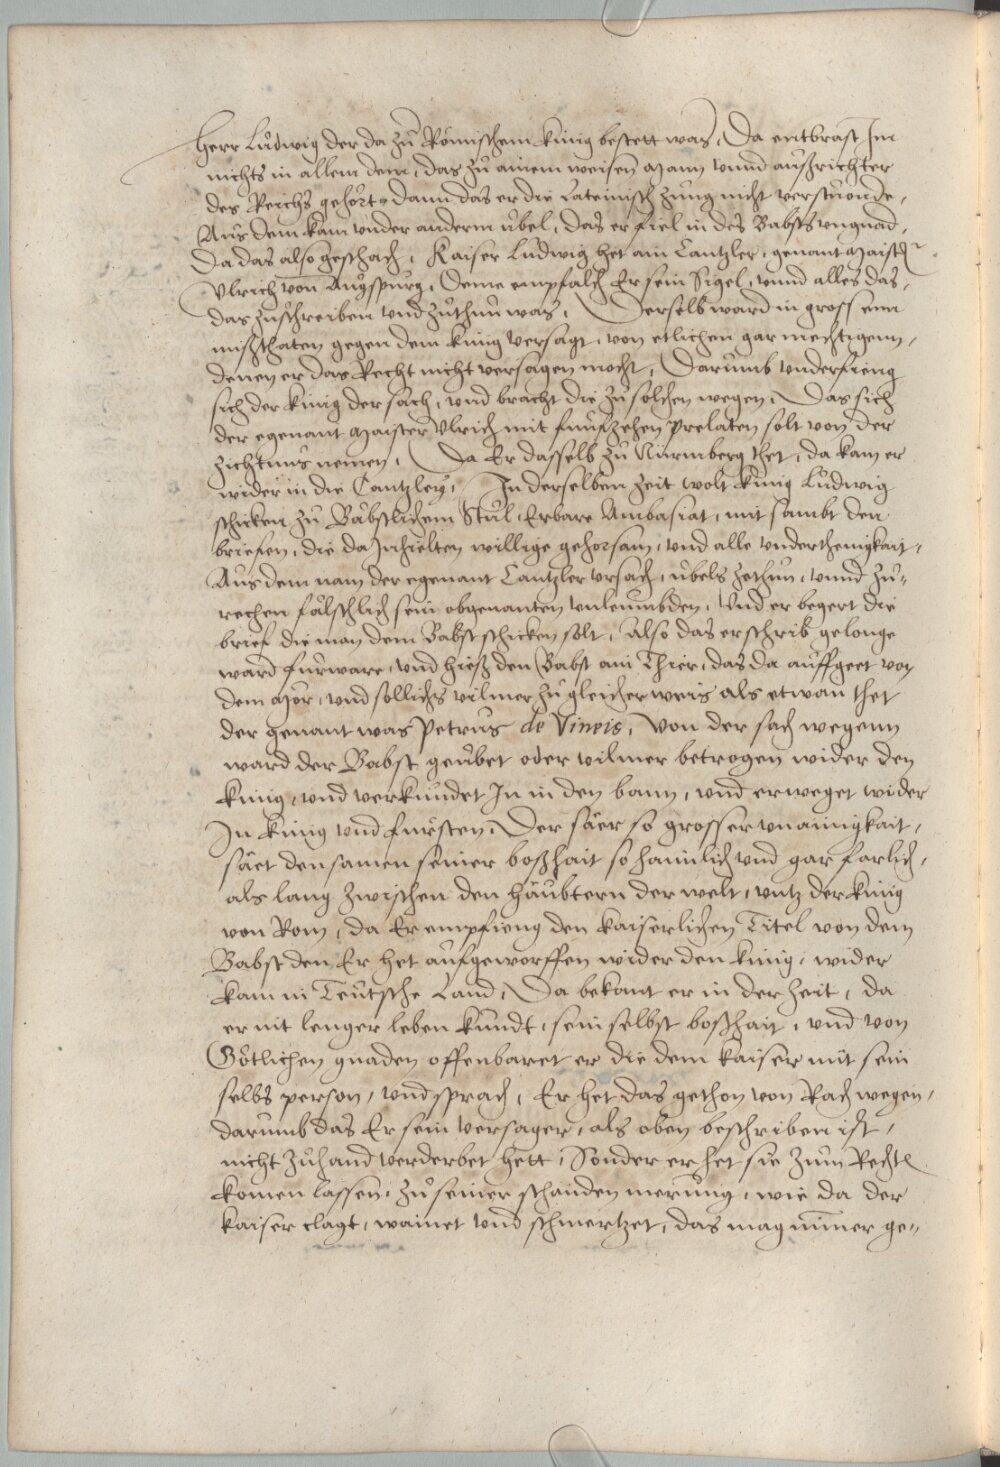 Herr Ludwig der da zu Römischem künig bestett was, Da entbrast Im
nichts in allem dem, das zu ainem weisen Mann unnd außrichter
des Reichs gehört, dann das er die Lateinisch zung nicht verstuonde,
Aus dem kam under anderm übel, das er fiel in des Babsts ungnad,
Da das also geschach, Kaiser Ludwig het ain Cantzler, genant Maister
Ulrich von Augspurg, Deme empfalch Er sein Sigel, unnd alles das,
das zuschreiben und zuthun was, Derselb ward in grossenn
mißthaten gegen dem künig versagt, von etlichen gar mechtigenn,
denen er das Recht nicht versagen mocht, Darumb underfieng
sich der künig der sach, und bracht die zu solchen wegen, Das sich
der egenant Maister Ulrich mit funfzehen prelaten solt von der
zichtnus nemen, Da Er dasselb zu Nürmberg thet, da kam er
wider in die Cantzley, In derselben zeit wolt künig Ludwig
schicken zu Bäbstlichem Stul, Erbare Ambasiat, mit sambt den
briefen, die da Inhielten willige gehorsam, und alle underthenigkait,
Aus dem nam der egenant Cantzler ursach, übels zethun, unnd zu-
rechen fälschlich sein obgenanten unleumbden, Und er begert die
brief die man dem Babst schicken solt, Also das er schrib gelonge
ward fürware, und hieß den Babst ain Thier, das da auffgeet von
dem Mör, und sollichs vilmer zu gleicher weis als etwan thet
der genant was Petrus de Vineis, Von der sach wegenn
ward der Babst geuebet oder vilmer betrogen wider den
künig, und verkundet In in den bann, und erweget wider
In künig und fürsten, Der säer so grosser unainigkait,
säet den samen seiner boßhait so haimlich und gar farlich,
als lang zwischen den häubtern der welt, untz der künig
von Rom, da Er empfieng den kaiserlichen Titel von dem
Babst den Er het aufgeworffen wider den künig, wider
kam in Teutsche Land, Da bekant er in der zeit, da
er nit lenger leben kundt, sein selbst boßhait, und von
Götlichen gnaden offenbaret er die dem kaiser mit sein
selbs person, und sprach, Er het das gethon von Rach wegen,
darumb das Er sein versager, als oben beschriben ist,
nicht zuhand verderbet hett, Sonder er het sie zum Rechten
komen lassen, zu seiner schanden merung, wie da der
kaiser clagt, wainet und schmertzet, das mag nimer ge-